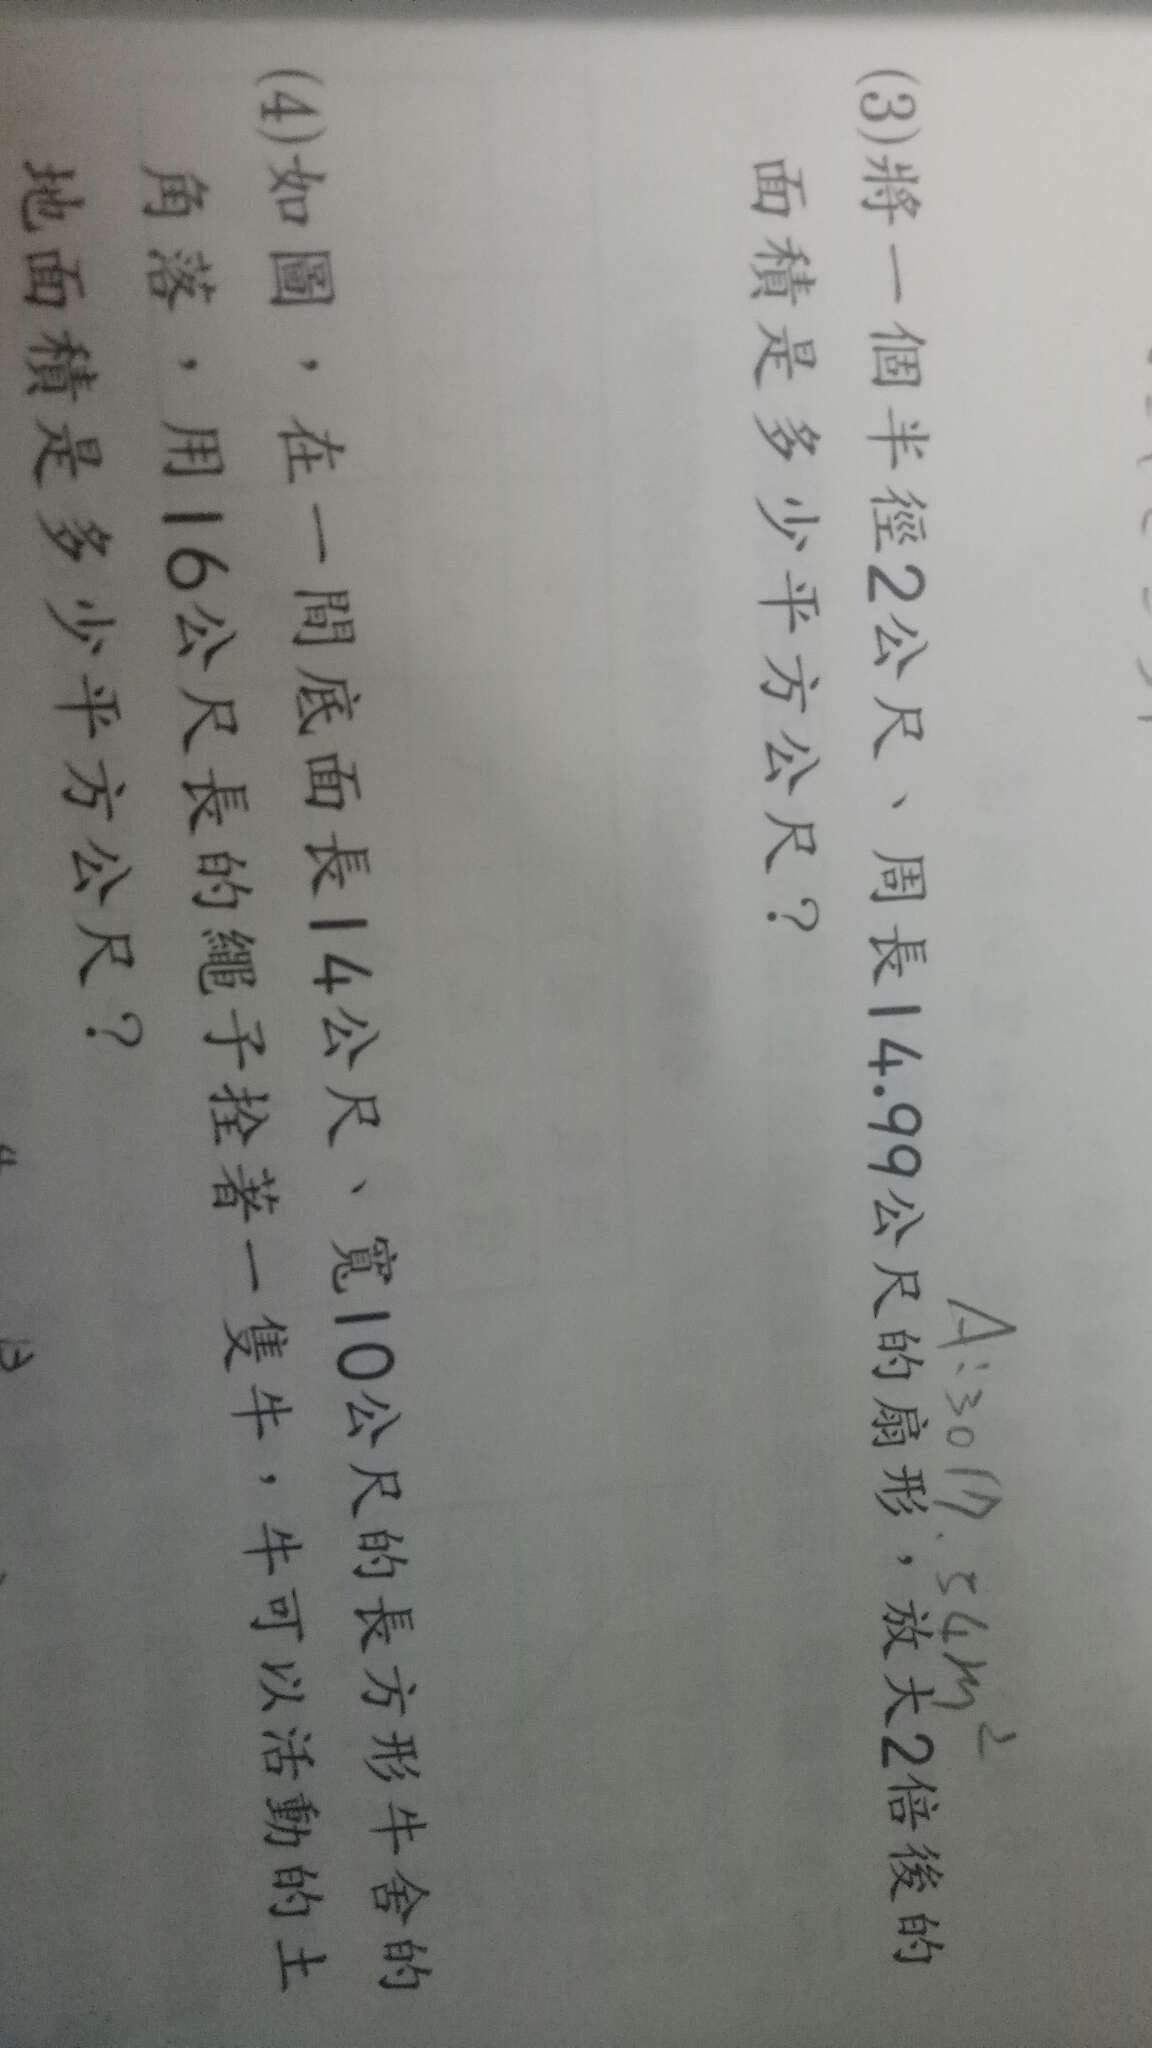 A:3017.54m²
(3)將一個半徑2公尺、周長14.99公尺的扇形，放大2倍後的
面積是多少平方公尺？
(4)如圖，在一間底面長14公尺、寬10公尺的長方形牛舍的
角落，用16公尺長的繩子拴著一隻牛，牛可以活動的土
地面積是多少平方公尺？